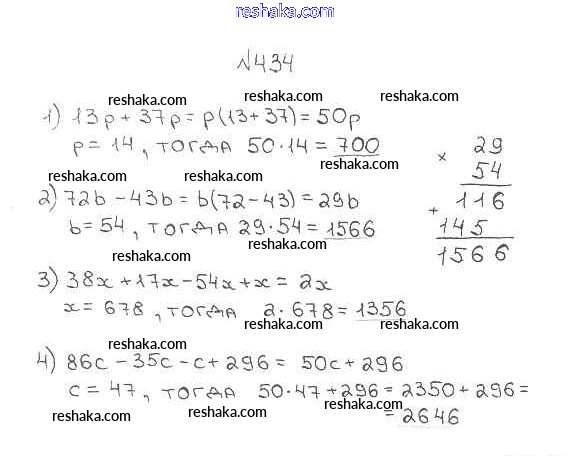 reshaka.com
№434
reshaka.com reshaka.com reshaka.com
1) 13p + 37p = p(13+37) = 50p
p = 14, тогда 50·14 = 700
reshaka.com reshaka.com
× 29
54
116
+ 145
1566
2) 72b - 43b = b(72-43) = 29b
b = 54, тогда 29·54 = 1566
reshaka.com reshaka.com
3) 38x + 17x - 54x + x = 2x
x = 678, тогда 2·678 = 1356
reshaka.com reshaka.com
reshaka.com
4) 86c - 35c - c + 296 = 50c + 296
c = 47, тогда 50·47 + 296 = 2350 + 296 =
= 2646
reshaka.com reshaka.com reshaka.com